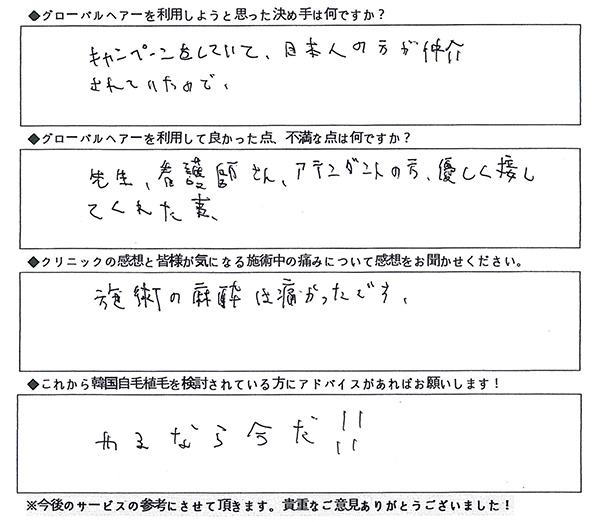 ◆グローバルヘアーを利用しようと思った決め手は何ですか？
キャンペーンをしていて、日本人の方が仲介
されていたので。
◆グローバルヘアーを利用して良かった点、不満な点は何ですか？
先生、看護師さん、アテンダントの方、優しく接し
てくれた事、
◆クリニックの感想と皆様が気になる施術中の痛みについて感想をお聞かせください。
施術の麻酔は痛かったです。
◆これから韓国自毛植毛を検討されている方にアドバイスがあればお願いします！
やるなら今だ!!
※今後のサービスの参考にさせて頂きます。貴重なご意見ありがとうございました！